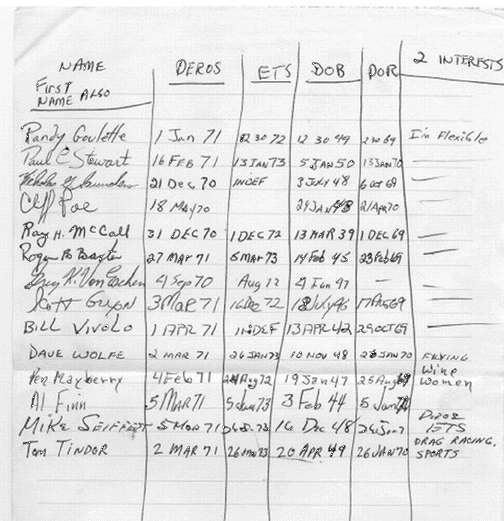 NAME DEROS ETS DOB DOR 2 INTERESTS
FIRST
NAME ALSO
Randy Goulette 1 Jan 71 30 72 12 30 49 69 I'm Flexible
Paul C Stewart 16 FEB 71 13 JAN 73 5 JAN 50 13 JAN 70
21 DEC 70 INDEF 3 JULY 48 6 Oct 69
Cliff Poe 18 MAY 70 21 APR 70
Ray H. McCall 31 DEC 70 1 DEC 72 13 MAR 39 1 DEC 69
Roger B Baxter 27 MAR 71 MAR 73 14 Feb 45 Feb 69
Greg 4 Sep 70 Aug 72 4 Jan 47 —
Scott 3 MAR 71 16 Dec 72 69
BILL VIVOLO 1 APR 71 INDEF 13 APR 42 29 OCT 69
DAVE WOLFE 2 MAR 71 26 JAN 73 10 NOV 48 JAN 70 FLYING
Ken Mayberry 4 Feb 71 Aug 72 19 Jan 47 25 Aug 69 Wine
Women
Al Finn 5 MAR 71 5 Jan 73 3 Feb 44 5 Jan
MIKE SEIFFERT 5 MAR 71 16 DEC 48 DEROS
ETS
TOM TINDOR 2 MAR 71 26 JAN 73 20 APR 49 26 JAN 70 DRAG RACING,
SPORTS